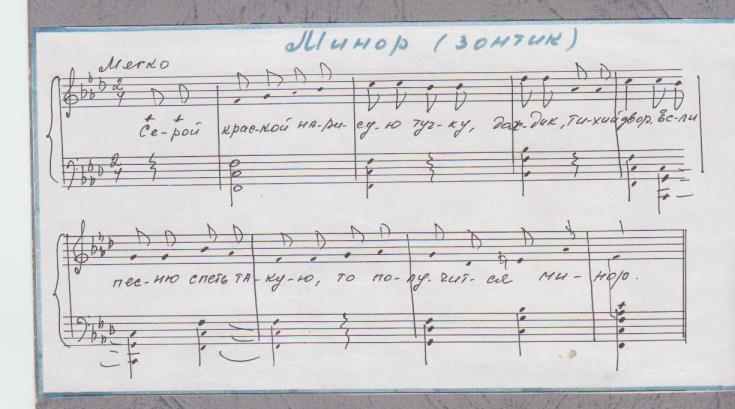 Минор (зонтик)
Мягко
2 4
Се-рой крас-кой на-ри-су-ю туч-ку, дож-дик, ти-хий двор. Ес-ли
2 4
пес-ню спеть та-ку-ю, то по-лу-чит-ся ми-нор.